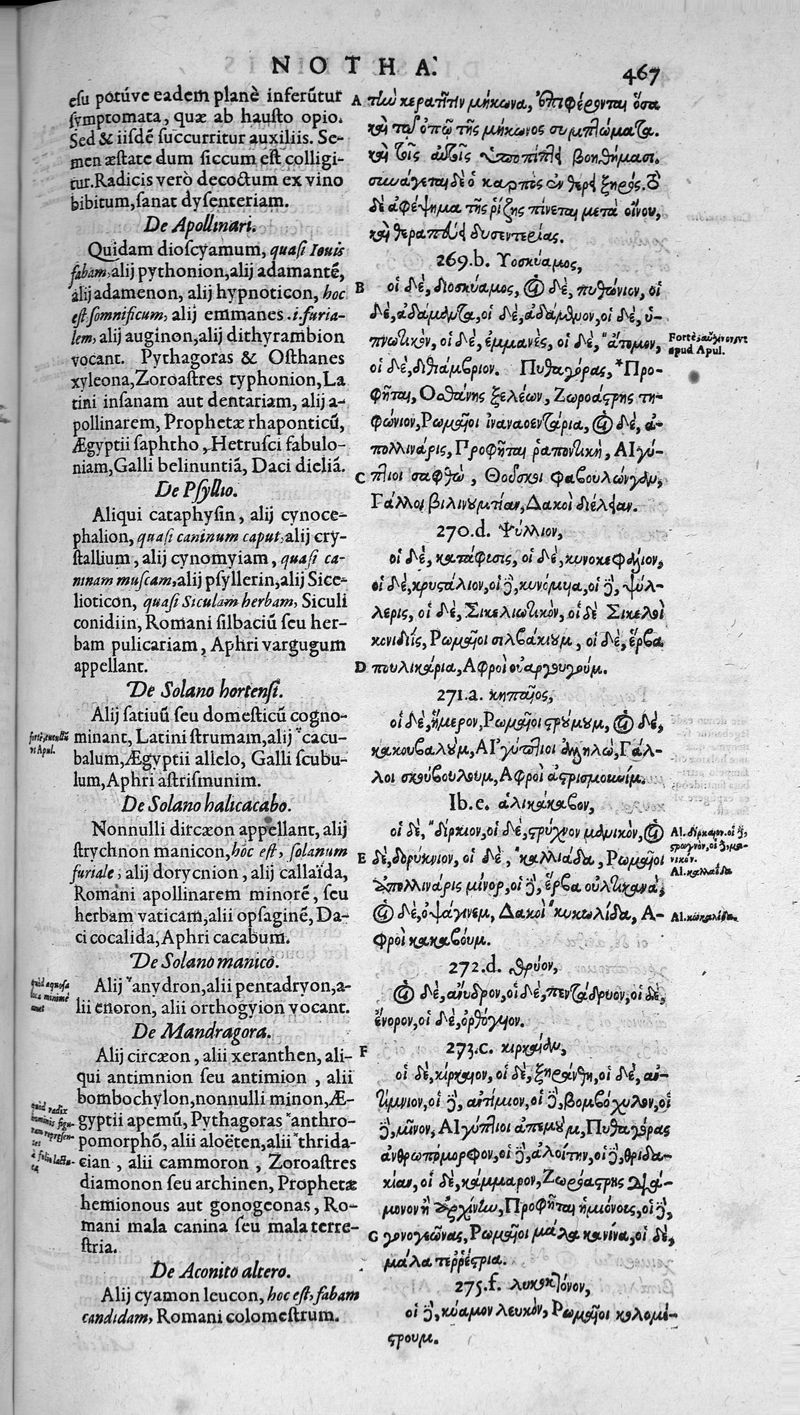 NOTHA.
467
esu potúve eadem planè inferũtur
symptomata, quæ ab hausto opio.
Sed & iisdẽ succurritur auxiliis. Se-
men æstate dum siccum est colligi-
tur. Radicis verò decoctum ex vino
bibitum, sanat dysenteriam.
De Apollinari.
Quidam dioscyamum, quasi Iouis
fabam, alij pythonion, alij adamantẽ,
alij adamenon, alij hypnoticon, hoc
est somnificum, alij emmanes .i. furia-
lem, alij auginon, alij dithyrambion
vocant. Pythagoras & Osthanes
xyleona, Zoroastres typhonion, La
tini insanam aut dentariam, alij a-
pollinarem, Prophetæ rhaponticũ,
Ægyptii saphtho, Hetrusci fabulo-
niam, Galli belinuntiã, Daci dieliã.
De Psyllio.
Aliqui cataphysin, alij cynoce-
phalion, quasi caninum caput, alij cry-
stallium, alij cynomyiam, quasi ca-
ninam muscam, alij psyllerin, alij Sice-
lioticon, quasi Siculam herbam, Siculi
conidiin, Romani silbaciũ seu her-
bam pulicariam, Aphri vargugum
appellant.
De Solano hortensi.
Alij satiuũ seu domesticũ cogno-
minant, Latini strumam, alij "cacu-
balum, Ægyptii allelo, Galli scubu-
lum, Aphri astrismunim.
De Solano halicacabo.
Nonnulli dircæon appellant, alij
strychnon manicon, hoc est, solanum
furiale, alij dorycnion, alij callaïda,
Romani apollinarem minorẽ, seu
herbam vaticam, alii opsaginẽ, Da-
ci cocalida, Aphri cacabum.
De Solano manico.
Alij "anydron, alii pentadryon, a-
lii enoron, alii orthogyion vocant.
De Mandragora.
Alij circæon, alii xeranthen, ali-
qui antimnion seu antimion, alii
bombochylon, nonnulli minon, Æ-
gyptii apemũ, Pythagoras "anthro-
pomorphõ, alii aloëten, alii "thrida-
cian, alii cammoron, Zoroastres
diamonon seu archinen, Prophetæ
hemionous aut gonogeonas, Ro-
mani mala canina seu mala terre-
stria.
De Aconito altero.
Alij cyamon leucon, hoc est, fabam
candidam, Romani colomestrum.
A τὴν κερατῖτιν μήκωνα, ἐπιφέρονται ὅσα
καὶ τοῦ ὀποῦ τῆς μήκωνος συμπτώματα.
καὶ τοῖς αὐτοῖς βοηθήμασι.
συνάγεται δὲ ὁ καρπὸς ἐν θέρει ξηρός. τὸ
δὲ ἀφέψημα τῆς ῥίζης πίνεται μετὰ οἴνου,
καὶ θεραπεύει δυσεντερίας.
269.b. Υοσκύαμος,
B οἱ δὲ, διοσκύαμος, οἱ δὲ, πυθώνιον, οἱ
δὲ, ἀδάμαντα, οἱ δὲ, ἀδάμενον, οἱ δὲ, ὑ-
πνωτικὸν, οἱ δὲ, ἐμμανὲς, οἱ δὲ, "ἄτομον,
οἱ δὲ, διθάμβριον. Πυθαγόρας, *Προ-
φῆται, Οσθάνης ξελέων, Ζωροάστρης τυ-
φώνιον, Ρωμαῖοι ἰνσαναδενταρία, οἱ δὲ, ἀ-
πολλινάρις, Προφῆται ῥαποντικὴ, Αἰγύ-
C πτιοι σαφθὼ, Θοῦσκοι φαβουλώνγεμ,
Γάλλοι βιλινουντίαν, Δακοὶ διέλειαν.
270.d. Ψύλλιον,
οἱ δὲ, κατάφισις, οἱ δὲ, κυνοκεφάλιον,
οἱ δὲ, κρυστάλιον, οἱ δὲ, κυνόμυια, οἱ δὲ, ψύλ-
λερις, οἱ δὲ, Σικελιωτικὸν, οἱ δὲ Σικελοὶ
κονιδιΐς, Ρωμαῖοι σιλβάκιουμ, οἱ δὲ, ἕρβα
D πουλικάρια, Αφροὶ οὐαργουγούμ.
271.a. κηπαῖος,
οἱ δὲ, ἥμερον, Ρωμαῖοι στρούμουμ, οἱ δὲ,
κακουβαλουμ, Αἰγύπτιοι ἀλληλὼ, Γάλ-
λοι σκούβουλουμ, Αφροὶ ἀστρισμουνίμ.
Ib.e. ἁλικάκαβον,
οἱ δὲ, "δίρκιον, οἱ δὲ, στρύχνον μανικὸν, οἱ
E δὲ, δορύκνιον, οἱ δὲ, "καλλιάδα, Ρωμαῖοι
ἀπολλινάρις μίνορ, οἱ δὲ, ἕρβα οὐλτικανὰ,
οἱ δὲ, ὀψάγινεμ, Δακοὶ "κυκωλίδα, Α-
φροὶ κακαβούμ.
272.d. θρύον,
οἱ δὲ, ἄνυδρον, οἱ δὲ, πεντάδρυον, οἱ δὲ,
ἔνορον, οἱ δὲ, ὀρθόγυιον.
F 273.c. κιρκαίαν,
οἱ δὲ, κίρκαιον, οἱ δὲ, ξηράνθη, οἱ δὲ, ἀν-
τίμνιον, οἱ δὲ, ἀντίμιον, οἱ δὲ, βομβόχυλον, οἱ
δὲ, μῖνον, Αἰγύπτιοι ἀπεμουμ, Πυθαγόρας
ἀνθρωπόμορφον, οἱ δὲ, ἀλοίτην, οἱ δὲ, θριδα-
κίαν, οἱ δὲ, κάμμαρον, Ζωροάστρης διαμό-
μονον ἢ ἀρχίνην, Προφῆται ἡμιόνοις, οἱ δὲ,
G γονογεῶνας, Ρωμαῖοι μάλα κανίνα, οἱ δὲ,
μάλα τερρέστρια.
275.f. λυκοκτόνον,
οἱ δὲ, κύαμον λευκὸν, Ρωμαῖοι κολομέ-
στρουμ.
Fortè
apud Apul.
Al. καλλαΐδα
Al. κωκαλίδα.